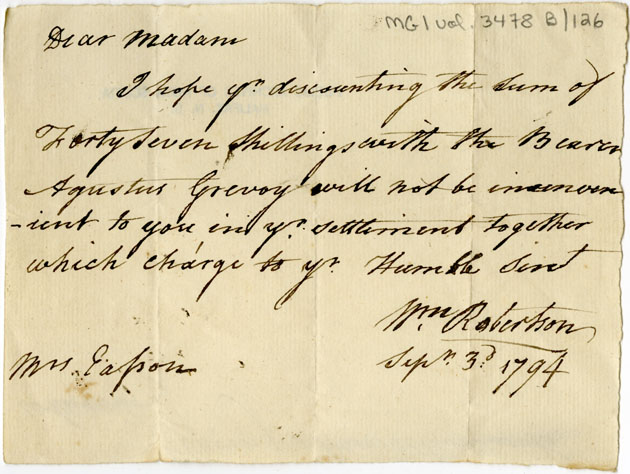 MG1 vol. 3478 B/126
Dear Madam
I hope yr. discounting the Sum of
Forty Seven Shillings with the Bearer
Agustus Grevoy will not be inconven
-ient to you in yr. settlement together
which charge to yr. Humble Servt
Wm Robertson
Sepr. 3d. 1794
Mrs. Easson